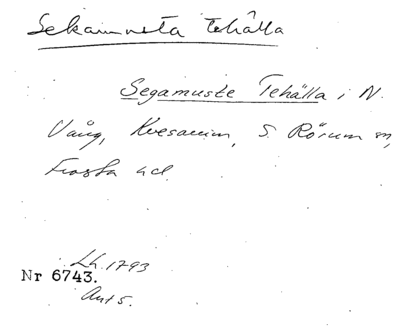 Sekamusta Tehålla
Segamuste Tehälla i N.
Vång, Kvesarum, S. Rörum m,
Frosta hd.
Lh. 1793
Nr 6743.
Ant 5.